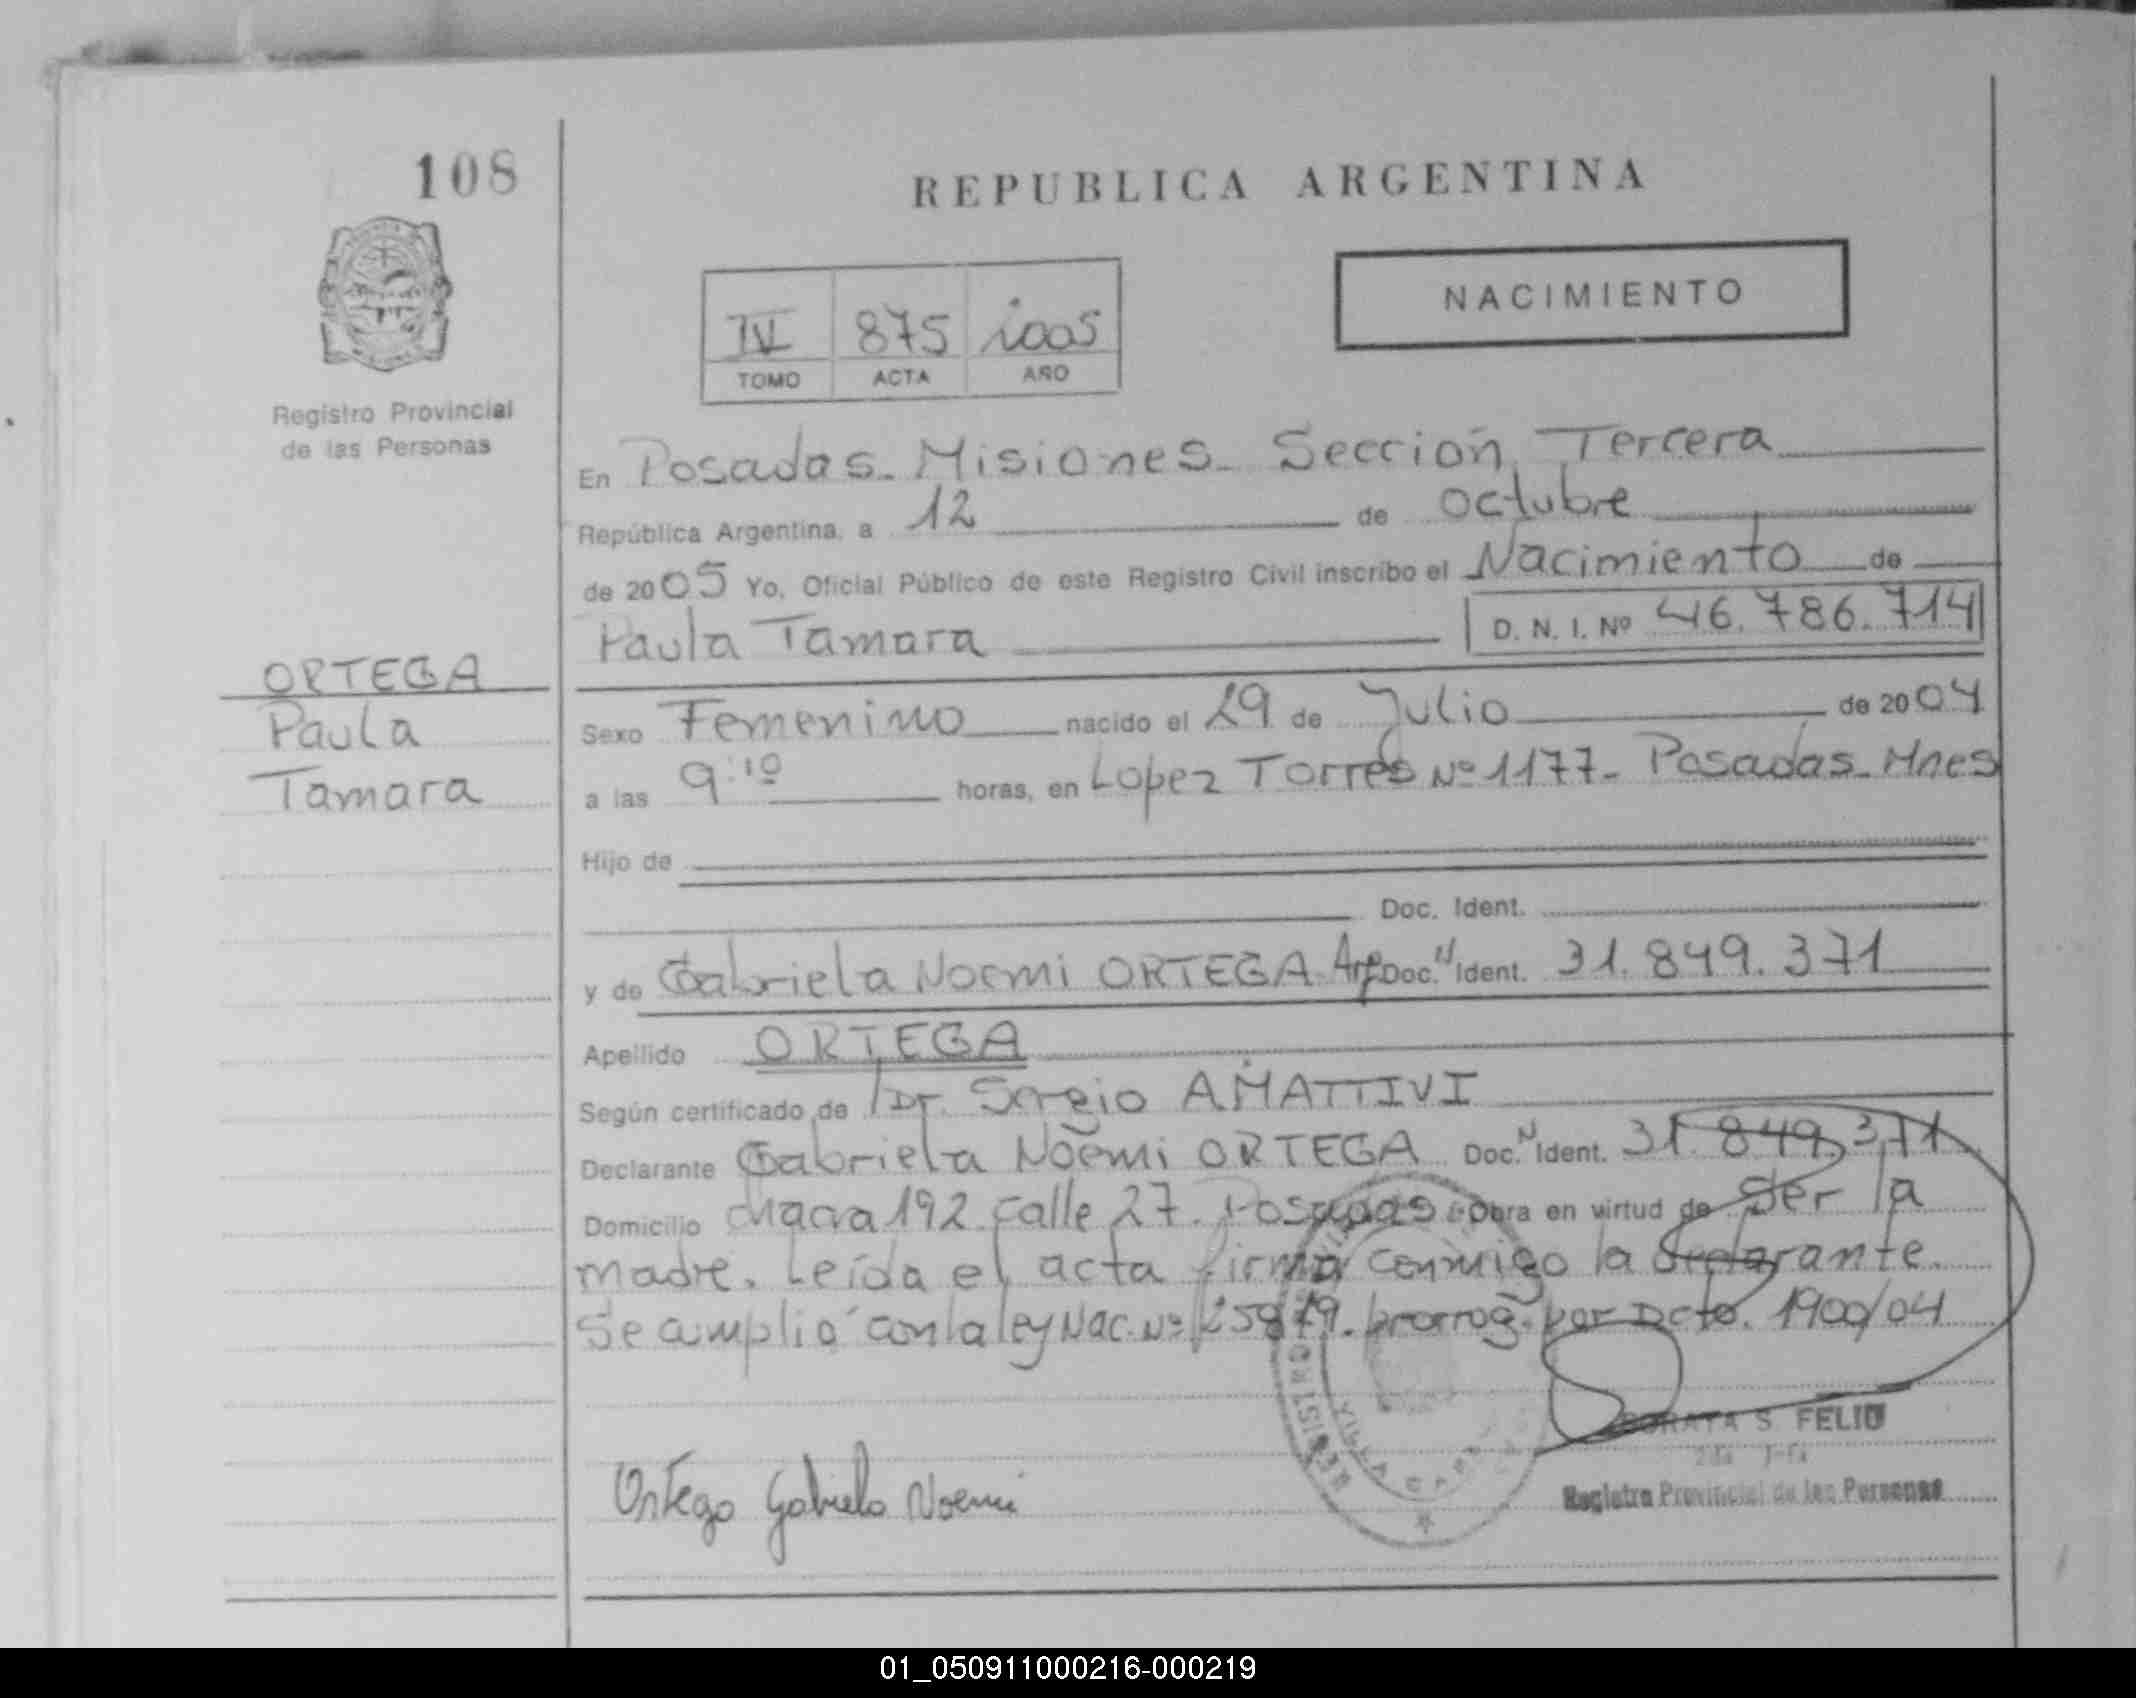 108
REPUBLICA ARGENTINA
NACIMIENTO
IV 875 2005
TOMO ACTA AÑO
Registro Provincial
de las Personas
En Posadas - Misiones - Sección Tercera
República Argentina, a 12 de octubre
de 2005 Yo, Oficial Público de este Registro Civil inscribo el Nacimiento de
Paula Tamara D. N. I. Nº 46.786.714
ORTEGA
Paula
Tamara
Sexo Femenino nacido el 29 de Julio de 2004
a las 9:10 horas, en Lopez Torres Nº 1177 - Posadas - Mnes
Hijo de
Doc. Ident.
y de Gabriela Noemi ORTEGA Arg Doc. N Ident. 31.849.371
Apellido ORTEGA
Según certificado de Dr. Sergio AMATTIVI
Declarante Gabriela Noemi ORTEGA Doc. N Ident. 31.849.371
Domicilio chacra 192 calle 27 - Posadas Obra en virtud de Ser la
madre. Leída el acta firma conmigo la declarante.
Se amplio con la ley Nac. Nº 25819. prorrog. por Dcto. 1900/04
Ortega Gabriela Noemi
SORAYA S. FELIU
Registro Provincial de las Personas
01_050911000216-000219